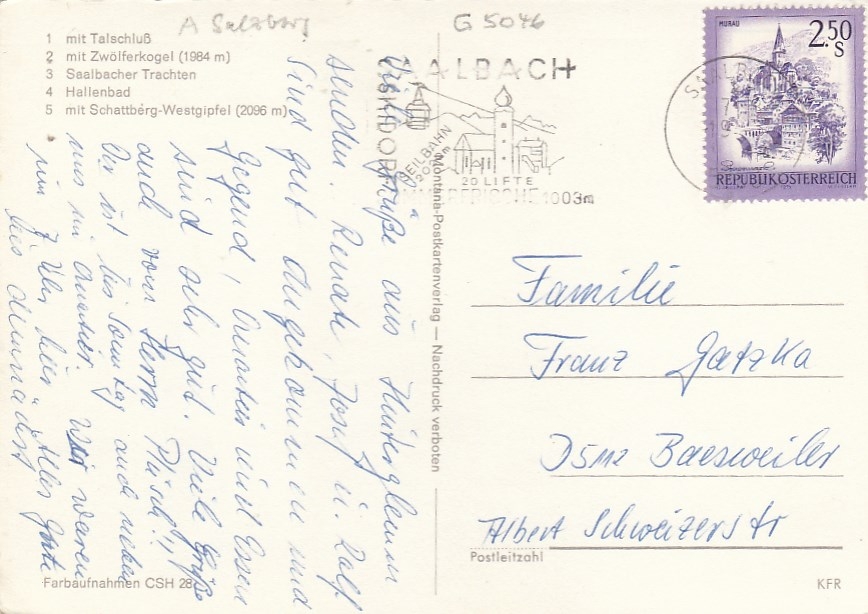 A Salzberg
G 5046
1 mit Talschluß
2 mit Zwölferkogel (1984 m)
3 Saalbacher Trachten
4 Hallenbad
5 mit Schattberg-Westgipfel (2096 m)
Viele Grüße aus Hinterglemm
senden. Renate, Josef u. Ralf
Sind gut angekommen und
Gegend, Quartier und Essen
sind sehr gut. Viele Grüße
auch vom Herrn Püsch!!
Er ist bis Sonntag auch
uns im Quartier. Wir waren
um 7 Uhr hier. Alles Gute
bis demnächst
Farbaufnahmen CSH 28
Montana-Postkartenverlag — Nachdruck verboten
SAALBACH
SKIDORF
SEILBAHN
2000m
20 LIFTE
1003m
MURAU
2.50
S
REPUBLIK ÖSTERREICH
Familie
Franz Gatzka
D5112 Baesweiler
Albert Schweizerstr
Postleitzahl
KFR